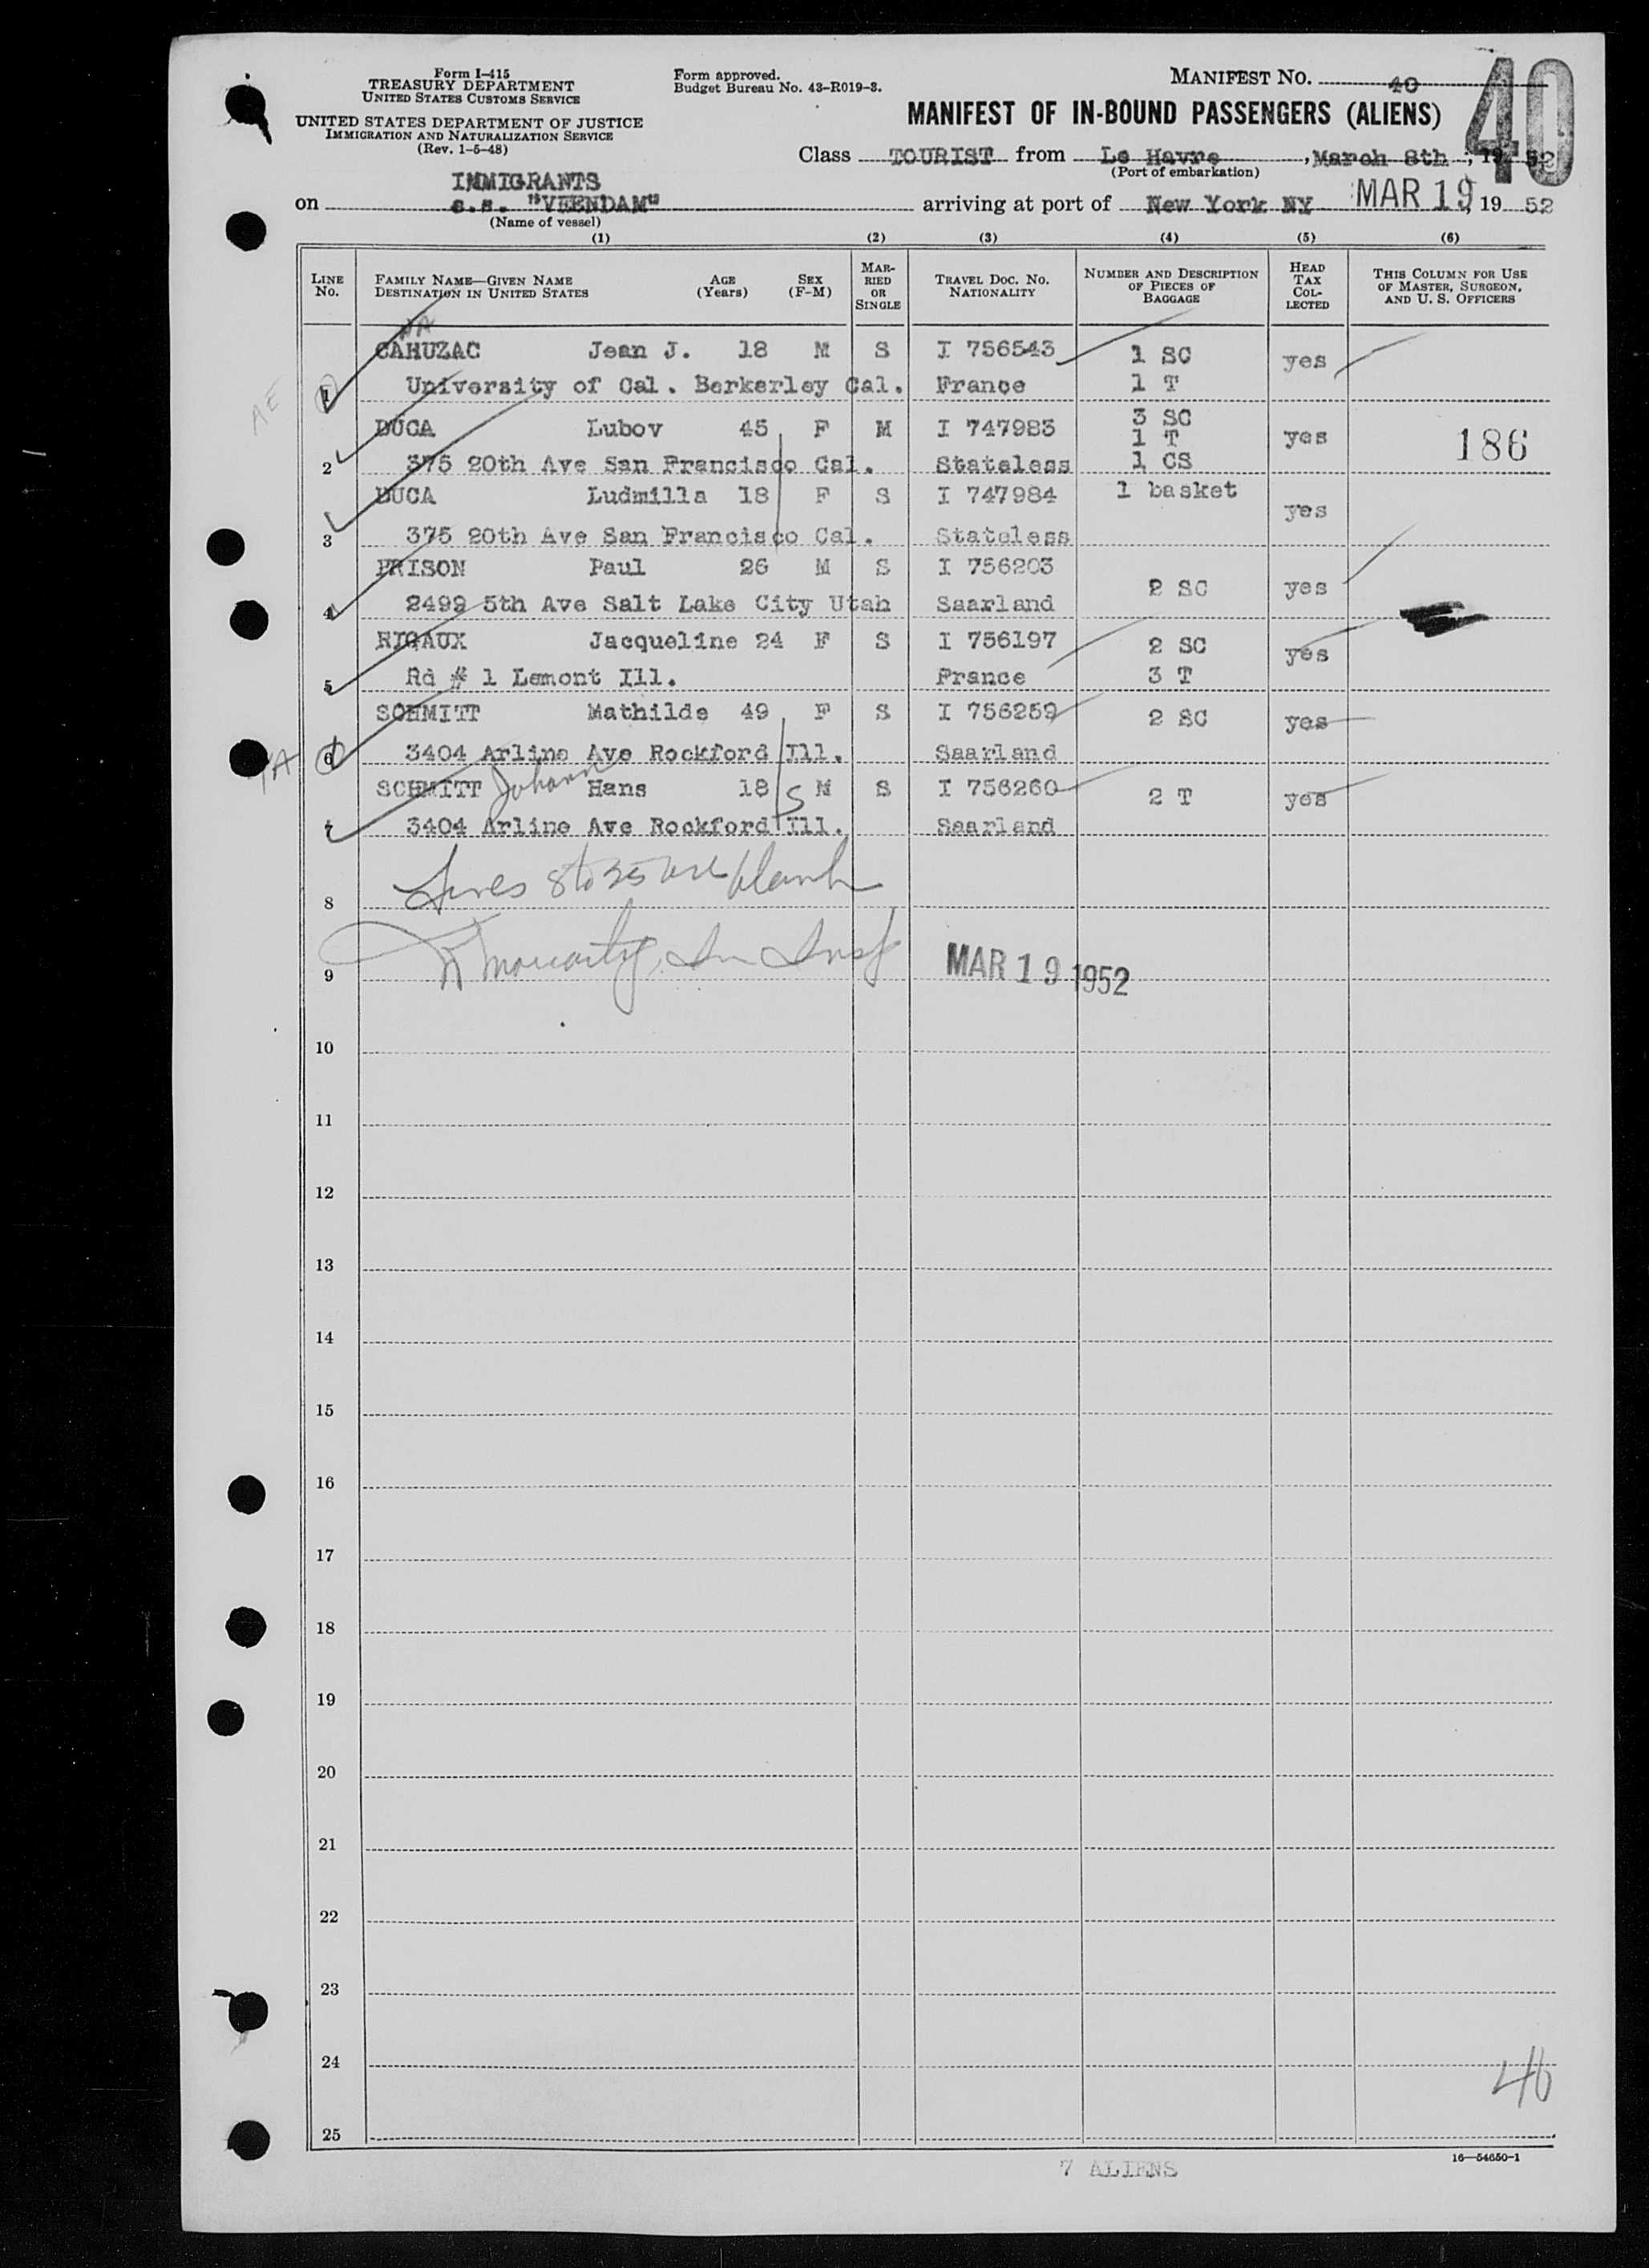 Form I-415
TREASURY DEPARTMENT
UNITED STATES CUSTOMS SERVICE
UNITED STATES DEPARTMENT OF JUSTICE
IMMIGRATION AND NATURALIZATION SERVICE
(Rev. 1-5-48)
Form approved.
Budget Bureau No. 43-R019-3.
MANIFEST No. 40
40
MANIFEST OF IN-BOUND PASSENGERS (ALIENS)
Class TOURIST from Le Havre, March 8th, 1952
(Port of embarkation)
IMMIGRANTS
on s.s. "VEENDAM" arriving at port of New York NY MAR 19 1952
(Name of vessel)
(1) (2) (3) (4) (5) (6)
LINE No. FAMILY NAME—GIVEN NAME DESTINATION IN UNITED STATES AGE (Years) SEX (F-M) MARRIED OR SINGLE TRAVEL DOC. No. NATIONALITY NUMBER AND DESCRIPTION OF PIECES OF BAGGAGE HEAD TAX COLLECTED THIS COLUMN FOR USE OF MASTER, SURGEON, AND U. S. OFFICERS
CAHUZAC Jean J. 18 M S I 756543 1 SC yes
AE 1 University of Cal. Berkerley Cal. France 1 T
DUCA Lubov 45 F M I 747983 3 SC 1 T yes 186
2 375 20th Ave San Francisco Cal. Stateless 1 CS
DUCA Ludmilla 18 F S I 747984 1 basket yes
3 375 20th Ave San Francisco Cal. Stateless
FRISON Paul 26 M S I 756203 2 SC yes
4 2499 5th Ave Salt Lake City Utah Saarland
RIGAUX Jacqueline 24 F S I 756197 2 SC yes
5 Rd # 1 Lemont Ill. France 3 T
SCHMITT Mathilde 49 F S I 756259 2 SC yes
6 3404 Arline Ave Rockford Ill. Saarland
SCHMITT Johann Hans 18 S M S I 756260 2 T yes
7 3404 Arline Ave Rockford Ill. Saarland
8 Lines 8 to 25 are blank
9 Moriarty, Im Insp MAR 19 1952
10
11
12
13
14
15
16
17
18
19
20
21
22
23
24
46
25
7 ALIENS
16—54650-1